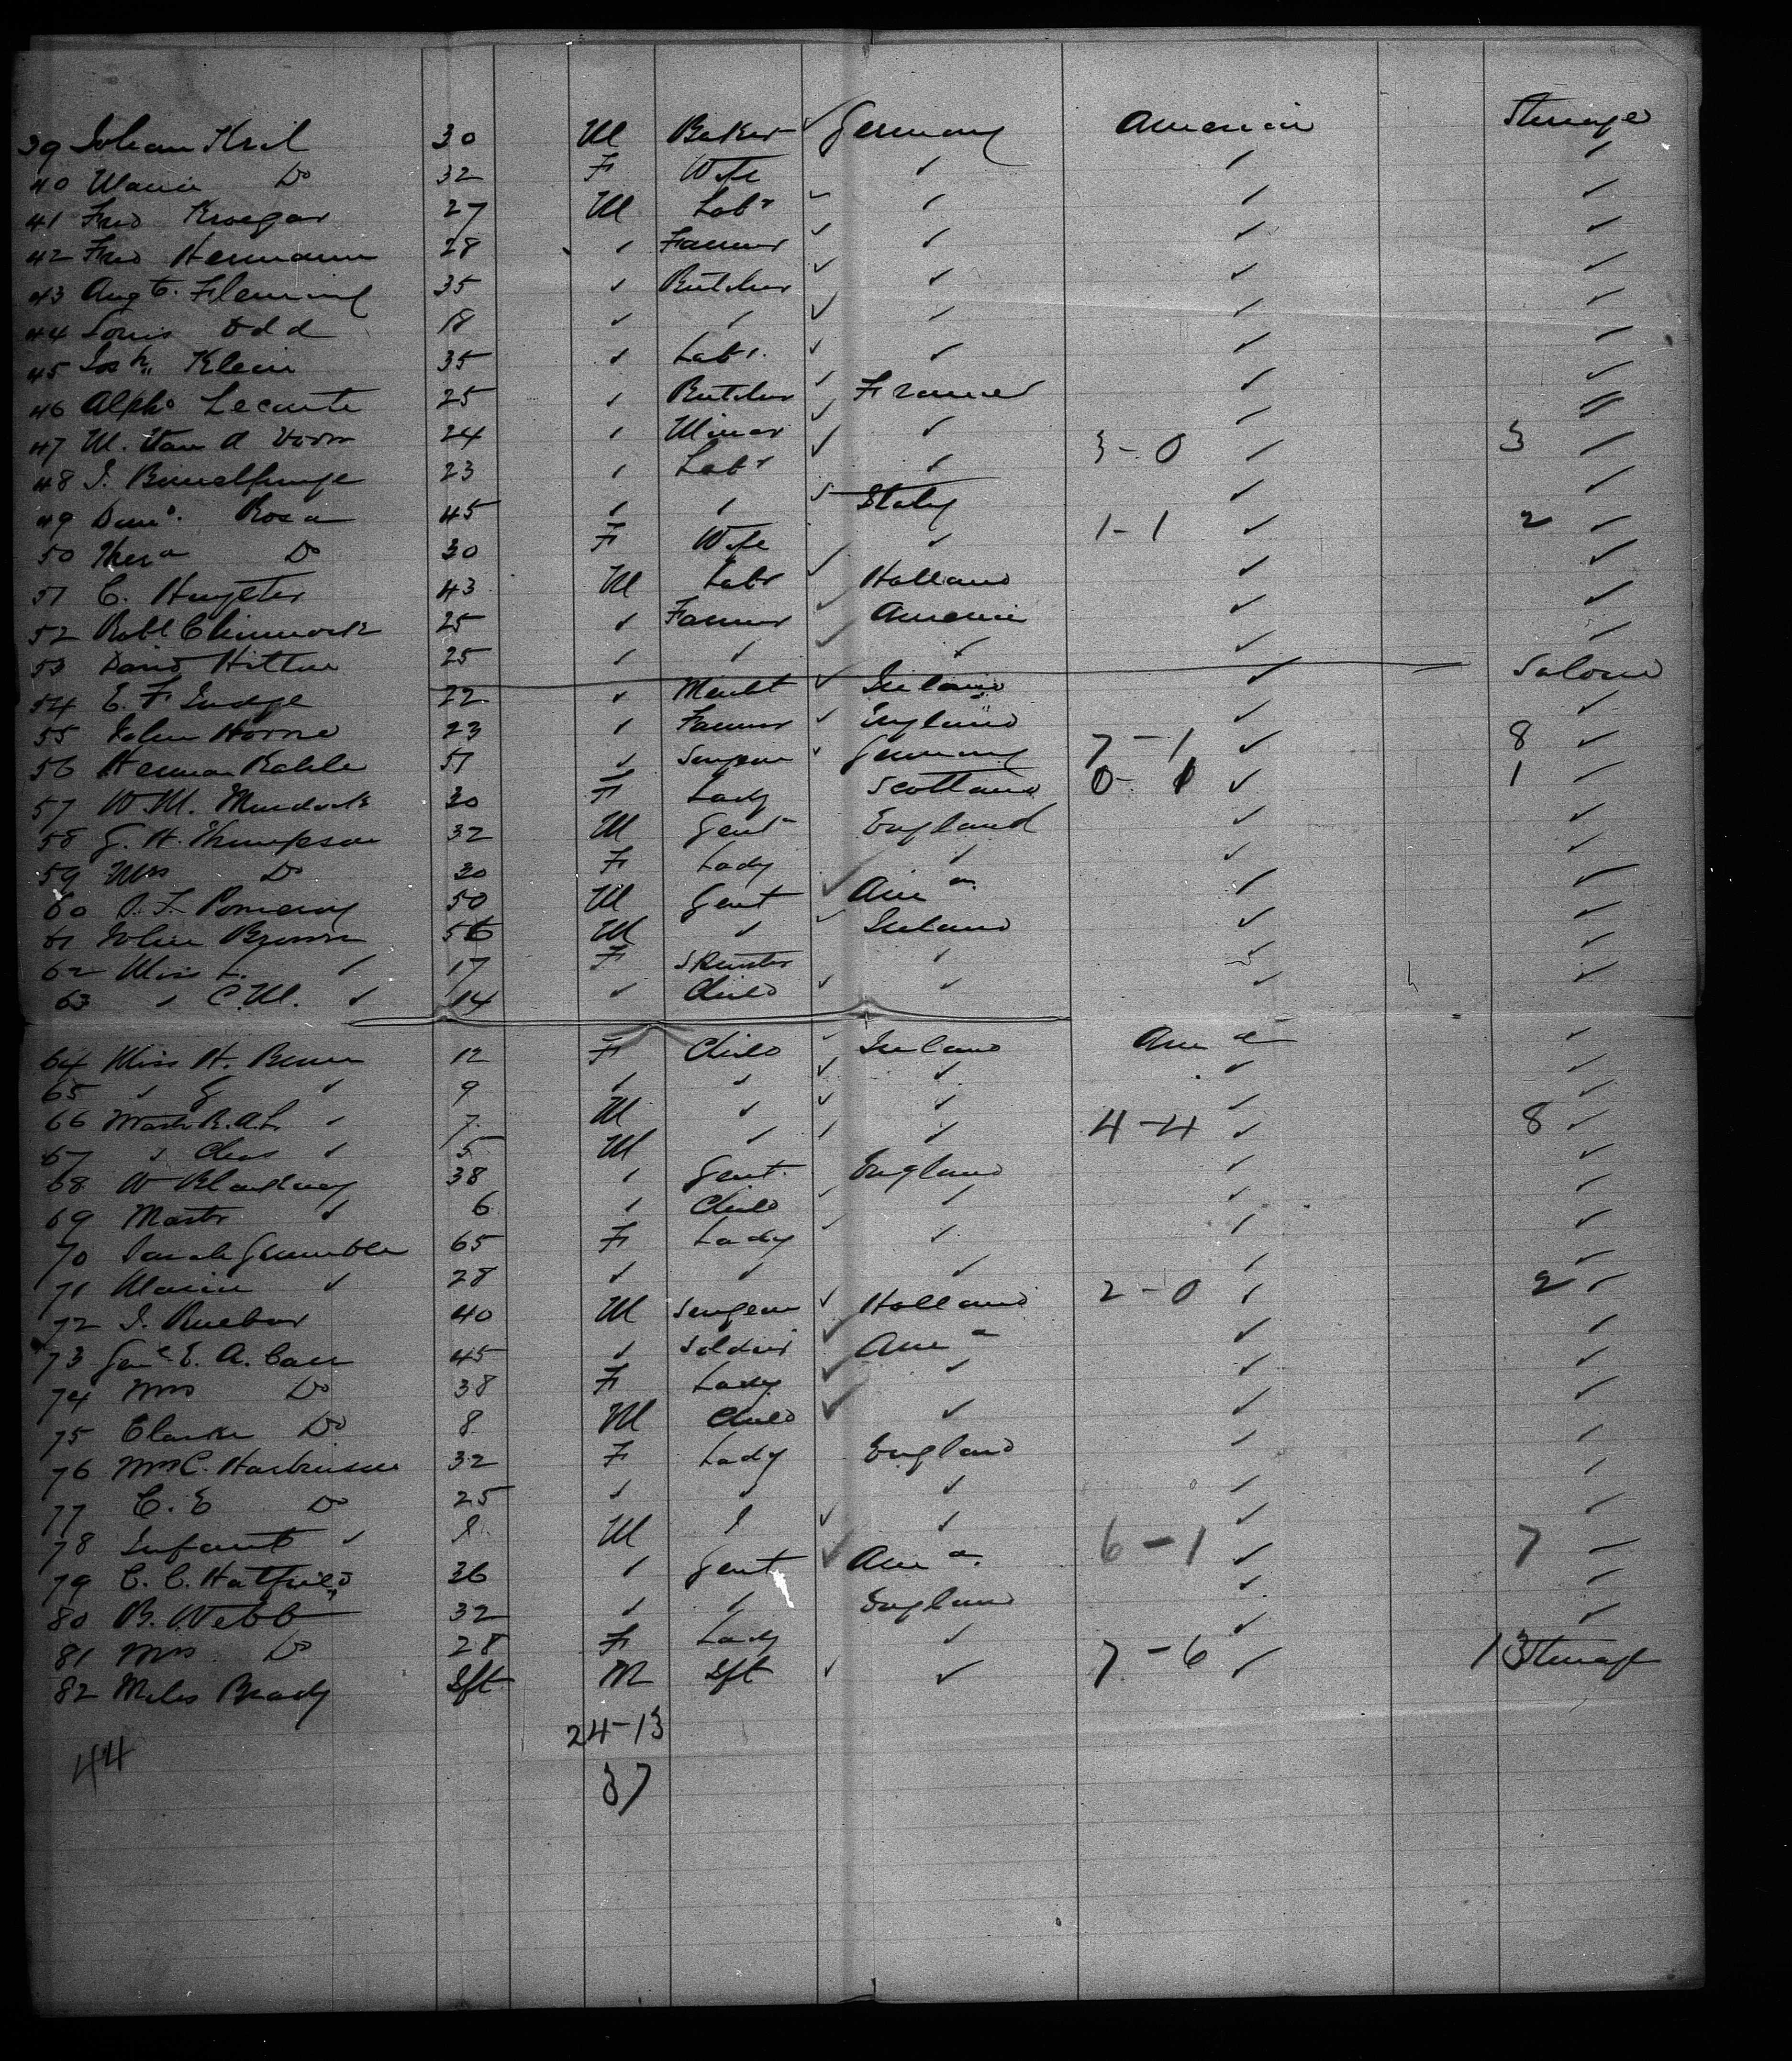 39 Johan Kril 30 M Baker ✓ Germany America Steerage
40 Marie Do 32 F Wife ✓ ✓ ✓
41 Fred Kroegar 27 M Labr ✓ ✓ ✓ ✓
42 Fred Hermann 28 ✓ Farmer ✓ ✓ ✓ ✓
43 Augt. Fleming 35 ✓ Butcher ✓ ✓ ✓ ✓
44 Louis Odd 18 ✓ ✓ ✓ ✓ ✓ ✓
45 Josh Klein 35 ✓ Labr. ✓ ✓ ✓ ✓
46 Alpho Lecante 25 ✓ Butcher ✓ France ✓ ✓
47 M. Van A 24 ✓ Miner ✓ ✓ ✓ ✓
48 J. 23 ✓ Labr ✓ ✓ 3-0 ✓ 3 ✓
49 Domo. Rosa 45 ✓ ✓ ✓ Italy ✓ ✓
50 Do 30 F Wife ✓ 1-1 ✓ 2 ✓
51 C. Huyster 43 M Labr ✓ Holland ✓ ✓
52 Robt 25 ✓ Farmer ✓ America ✓ ✓
53 David 25 ✓ ✓ ✓ ✓ ✓ ✓
54 E. F. Judge 22 ✓ Mercht ✓ Ireland ✓ Saloon
55 John Horne 23 ✓ Farmer ✓ England ✓ ✓
56 Herman Kahle 51 ✓ Surgeon ✓ Germany 7-1 ✓ 8 ✓
57 W. M. Murdock 30 F Lady Scotland 0-1 ✓ 1 ✓
58 G. H. Thompson 32 M Gent England ✓ ✓
59 Mrs Do 30 F Lady ✓ ✓ ✓
60 Pomeroy 50 M Gent ✓ Ama ✓ ✓
61 John Brown 56 M ✓ ✓ Ireland ✓ ✓
62 Miss L. ✓ 17 F Spinster ✓ ✓ ✓
63 ✓ C. M. ✓ 14 ✓ Child ✓ ✓ ✓ ✓
64 Miss H. Brown 12 F Child ✓ Ireland Ama ✓
65 ✓ G ✓ 9 ✓ ✓ ✓ ✓ ✓ ✓
66 Mastr R. A. L. ✓ 7 M ✓ ✓ ✓ ✓ ✓
67 ✓ Chas ✓ 5 M ✓ ✓ ✓ 4-4 ✓ 8 ✓
68 W 38 ✓ Gent. England ✓ ✓
69 Mastr ✓ 6 ✓ Child ✓ ✓ ✓ ✓
70 Sarah Grumble 65 F Lady ✓ ✓ ✓ ✓
71 Marie ✓ 28 ✓ ✓ ✓ ✓ ✓
72 J. 40 M Surgeon ✓ Holland 2-0 ✓ 2 ✓
73 Genl E. A. Carr 45 ✓ Soldier ✓ Ama ✓ ✓
74 Mrs Do 38 F Lady ✓ ✓ ✓ ✓
75 Clark Do 8 M Child ✓ ✓ ✓ ✓
76 Mrs C. 32 F Lady England ✓ ✓
77 C. E Do 25 ✓ ✓ ✓ ✓ ✓
78 Infant ✓ M ✓ ✓ ✓ ✓
79 C. C. Hatfield 36 ✓ Gent ✓ Ama. 6-1 ✓ 7 ✓
80 B. Webb 32 ✓ ✓ England ✓ ✓
81 Mrs. Do 28 F Lady ✓ ✓ ✓
82 Miles Brady Ift M Ift ✓ ✓ 7-6 ✓ 13 Steerage
24-13
44
37